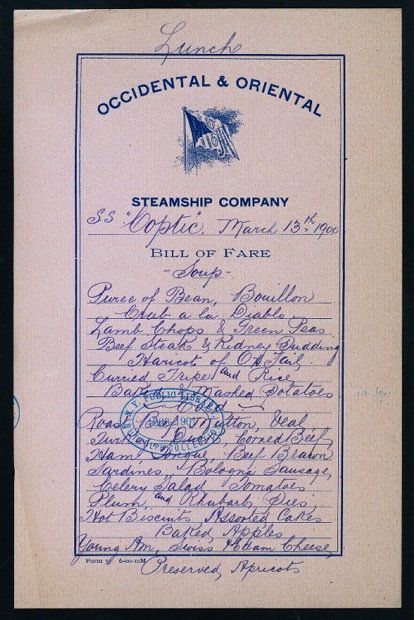 Lunch
OCCIDENTAL & ORIENTAL
STEAMSHIP COMPANY
SS "Coptic". March 13th 1900
BILL OF FARE
-Soup-
Puree of Bean, Bouillon
Crab a la Diable
Lamb Chops & Green Peas
Beef Steak & Kidney Pudding
Haricot of Ox Tail
Curried Tripe and Rice
Baked Mashed Potatoes
Cold
Roast Beef, Mutton, Veal
Turkey, Duck, Corned Beef
Ham, Tongue, Beef Brawn
Sardines, Bologna Sausage,
Celery Salad Tomatoes
Plum and Rhubarb Pies
Hot Biscuits Assorted Cakes
Baked Apples
Young Am, Swiss & Edam Cheese,
Form 57 6-00-10M
Preserved Apricots
N.Y. PUBLIC LIBRARY